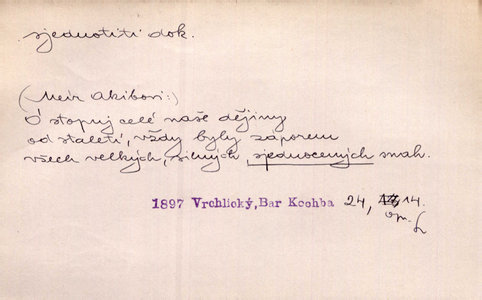 sjednotiti dok.
(Meir Akibovi:)
Ó stopuj celé naše dějiny
od staletí, vždy byly záporem
všech velkých, silných, sjednocených snah.
1897 Vrchlický, Bar Kochba 24, 14.
op.